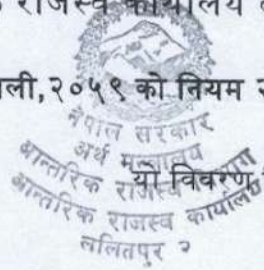 राजस्व कार्यालय
ली,२०५९ को नियम
नेपाल सरकार
अर्थ मन्त्रालय
आन्तरिक राजस्व विभाग
यो विवरण
आन्तरिक राजस्व कार्यालय
ललितपुर २